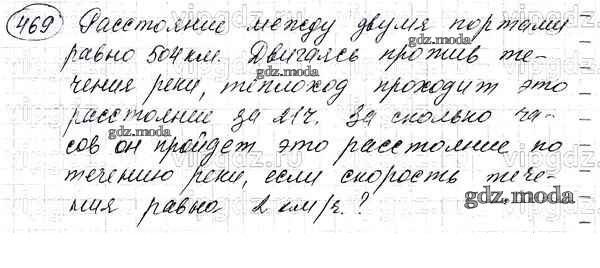 469 Расстояние между двумя портами
равно 504 км. Двигаясь против те-
чения реки, теплоход проходит это
расстояние за 21ч. За сколько ча-
сов он пройдет это расстояние по
течению реки, если скорость тече-
ния равна 2 км/ч.?
gdz.moda
gdz.moda
gdz.moda
gdz.moda
gdz.moda
gdz.moda